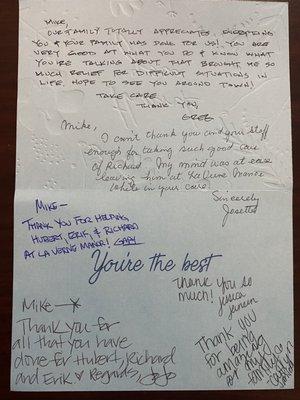 Mike,
OUR FAMILY TOTALLY APPRECIATES EVERYTHING
YOU & YOUR FAMILY HAS DONE FOR US! YOU ARE
VERY GOOD AT WHAT YOU DO & KNOW WHAT
YOU'RE TALKING ABOUT THAT BROUGHT ME SO
MUCH RELIEF FOR DIFFICULT SITUATIONS IN
LIFE, HOPE TO SEE YOU AROUND TOWN!
TAKE CARE
THANK YOU,
GREG
Mike,
I can't thank you and your staff
enough for taking such good care
of Richard. My mind was at ease
leaving him at LaVerne Manor
while in your care.
Sincerely
Josette
MIKE-
THANK YOU FOR HELPING
HUBERT, ERIK, & RICHARD
AT LA VERNE MANOR! GARY
You're the best
Thank you so
much!
Jessica
Mike-
Thank you for
all that you have
done for Hubert, Richard
and Erik ♡ Regards, JoJo
Thank you
for being
amazing